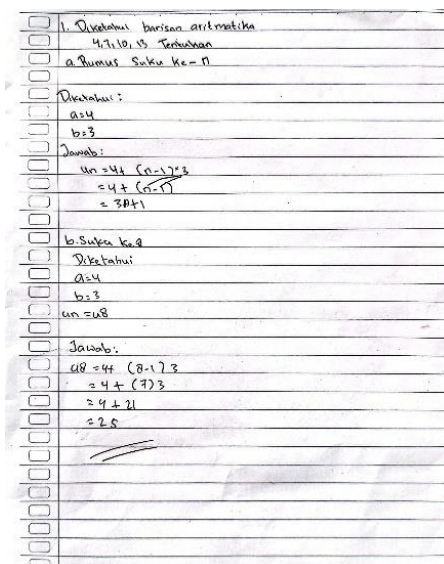 1. Diketahui barisan aritmatika
4,7,10,13 Tentukan
a. Rumus Suku ke-n
Diketahui:
a=4
b=3
Jawab:
Un = 4+ (n-1)×3
= 4 + (n-1)
= 3n+1
b. Suku Ke 8
Diketahui
a=4
b=3
un = u8
Jawab:
u8 = 4+ (8-1) 3
= 4 + (7) 3
= 4 + 21
= 25